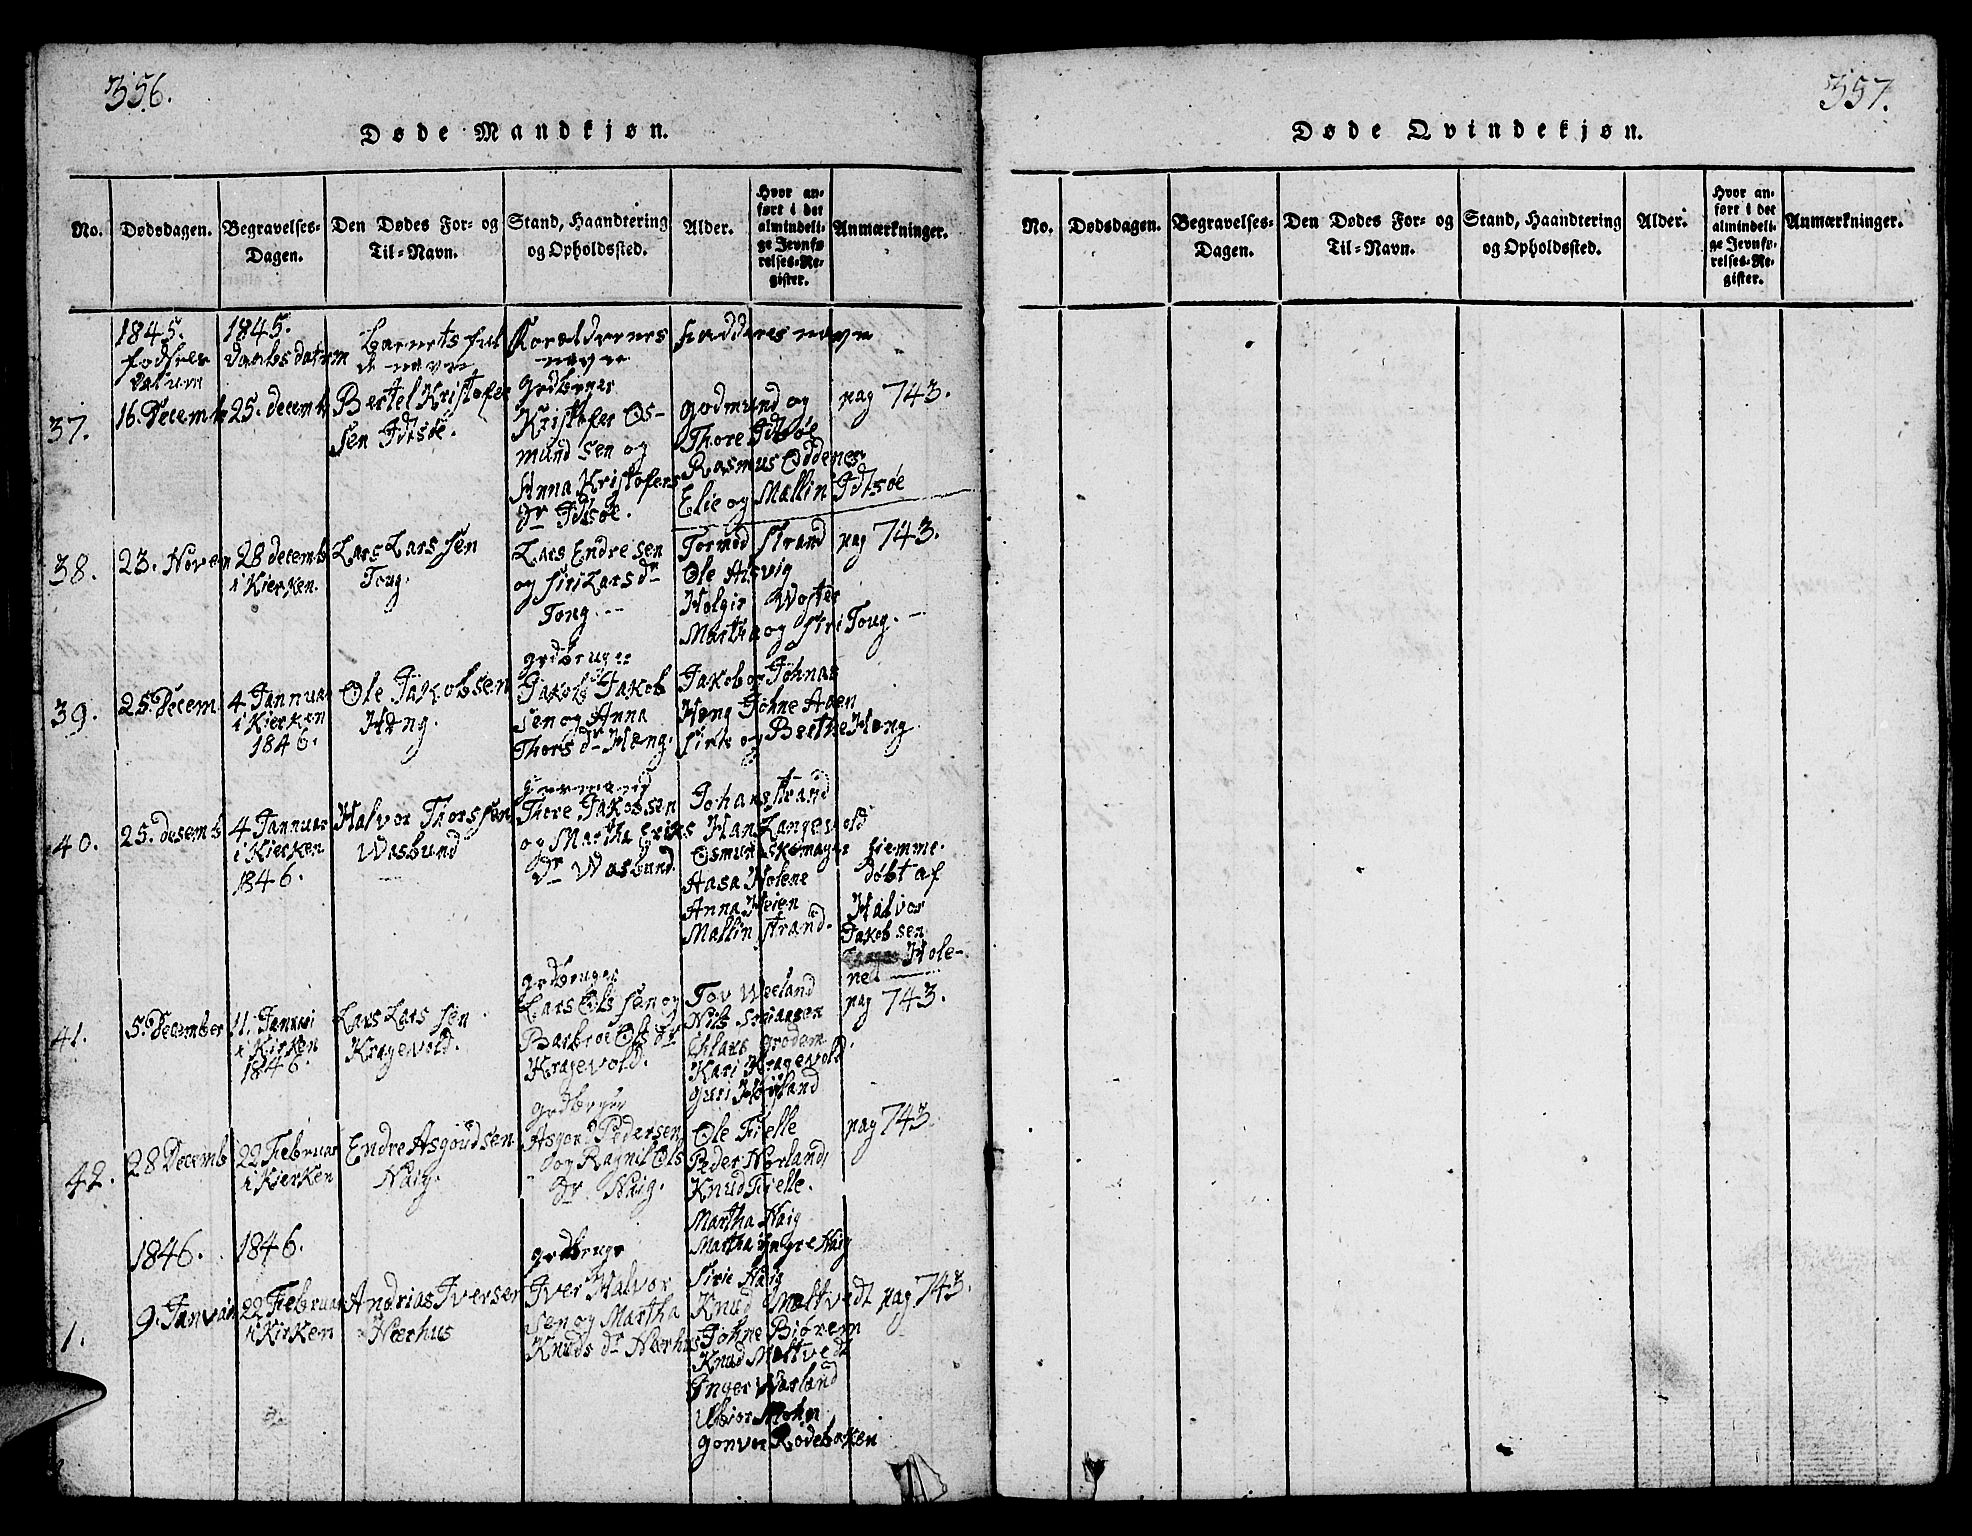 356.
Døde Mandkjøn.
No.
Dødsdagen.
Begravelses-
Dagen.
Den Dødes For- og
Til-Navn.
Stand, Haandtering
og Opholdssted.
Alder.
Hvor an-
ført i det
almindeli-
ge Jevnfø-
relses-Re-
gister.
Anmærkninger.
1845.
fodsels
datum
1845.
daabs datum
Barnets ful
de navn
Forældrenes
navne
faddernes navn
37.
16. Decemb
25. decemb
Bertel Kristofer
sen Idtsøe.
Kristofer Os-
mund sen og
Anna Kristofers
Dr Idtsøe.
godmund og
Thore Idtsøe
Rasmus Oddenes
Elie og Mallin Idtsøe
pag 743.
38.
23. Novem
28 decemb
i Kierken.
Lars Lars sen
Toug.
Lars Endre sen
og siri Lars dr
Toug.
Tormod Strand
Ole Alsvig
Holgir Woster
Martha og siri Toug.
pag 743.
39.
25 Decem
4 Jannuar
i Kierken
1846.
Ole Jakobsen
Hæng.
grdbruger
Jakob Jakob
sen og Anna
Thors dr Hæng.
Jakob og Johnas
Hæng Johne Aaen
sirie og Berthe Hæng
40.
25. desemb
4 Jannuar
i Kierken
1846.
Halvor Thorssen
Wasbund
Thore Jakobsen
og Martha Eriks
Dr Wasbund
Johan strand
Hans Langevold
Osmund skomager
Aasa Holene
Anna Heien
Mallin strand.
hiemme.
døbt af
Halvor
Jakob sen
Hole-
ned
41.
5 December
11. Januari
i Kirken
1846.
Lars Lars sen
Kragevold.
grdbruger
Lars Ols sen og
Barbroe Ols dr
Kragevold.
Tov Weeland
Nils
Clars grodem
Kari Kragevold
guri Høyland
pag 743.
42.
28 Decemb
22 Februar
i Kierken
Endre Asgoudsen
Haig.
Asgou Pedersen
og Ragnil Ols
Dr. Haig.
Ole Fielle
Peder Norland
Knud Fielle.
Martha Haig
Martha Haig
Sirie Haig
pag 743
1846.
1846.
1.
9. Januar
22 Februar
i Kirken
Andrias Iversen
Nærhus
grdbruger
Iver Halvor
sen og Martha
Knuds dr Nærhus
Knud Moltvedt
Johne Biørem
Knud Moltvedt
Inger Warland
gonver Rodeboken
pag 743.
357.
Døde Qvindekjøn.
No.
Dødsdagen.
Begravelses-
Dagen.
Den Dødes For- og
Til-Navn.
Stand, Haandtering
og Opholdssted.
Alder.
Hvor an-
ført i det
almindeli-
ge Jevnfø-
relses-Re-
gister.
Anmærkninger.